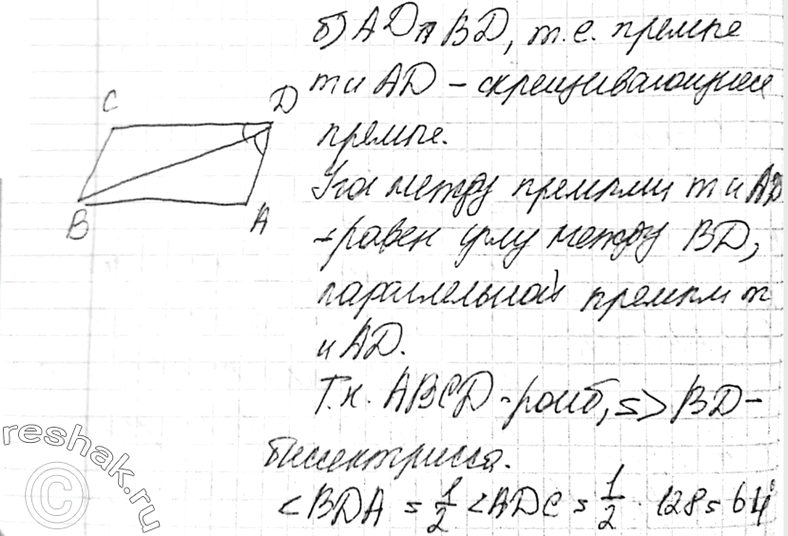 б) AD ∩ BD, т.е. прямые
m и AD – скрещивающиеся
C
D
прямые.
Угол между прямыми m и AD
B
A
– равен углу между BD,
параллельной прямым m
и AD.
Т.к. ABCD – ромб, => BD –
биссектрисса.
<BDA = 1/2 <ADC = 1/2 · 128 = 64°
reshak.ru
©